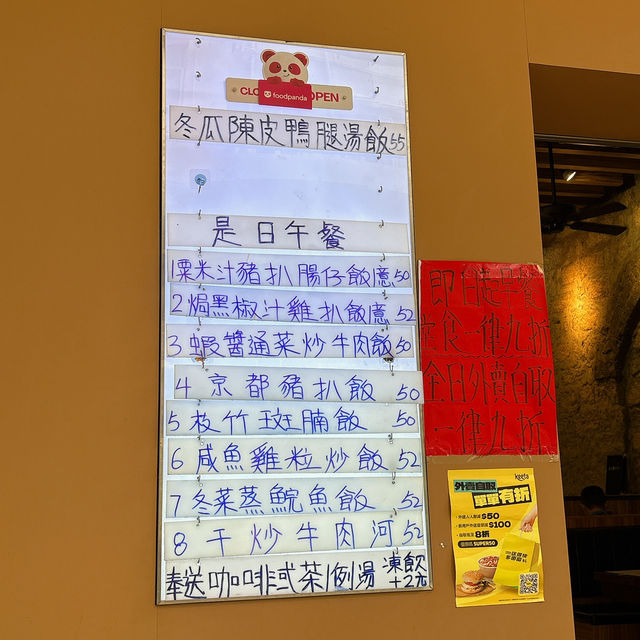 CLO
foodpanda
OPEN
冬瓜陳皮鴨腿湯飯55
是日午餐
1粟米汁豬扒腸仔飯意50
2焗黑椒汁雞扒飯意52
3蝦醬通菜炒牛肉飯50
4京都豬扒飯 50
5枝竹斑腩飯 50
6咸魚雞粒炒飯 52
7冬菜蒸鯇魚飯 52
8干炒牛肉河52
奉送咖啡或茶/例湯 凍飲+2元
即日起早餐
堂食一律九折
全日外賣自取
一律九折
keeta
外賣自取
單單有折
$50
$100
8折
SUPER50